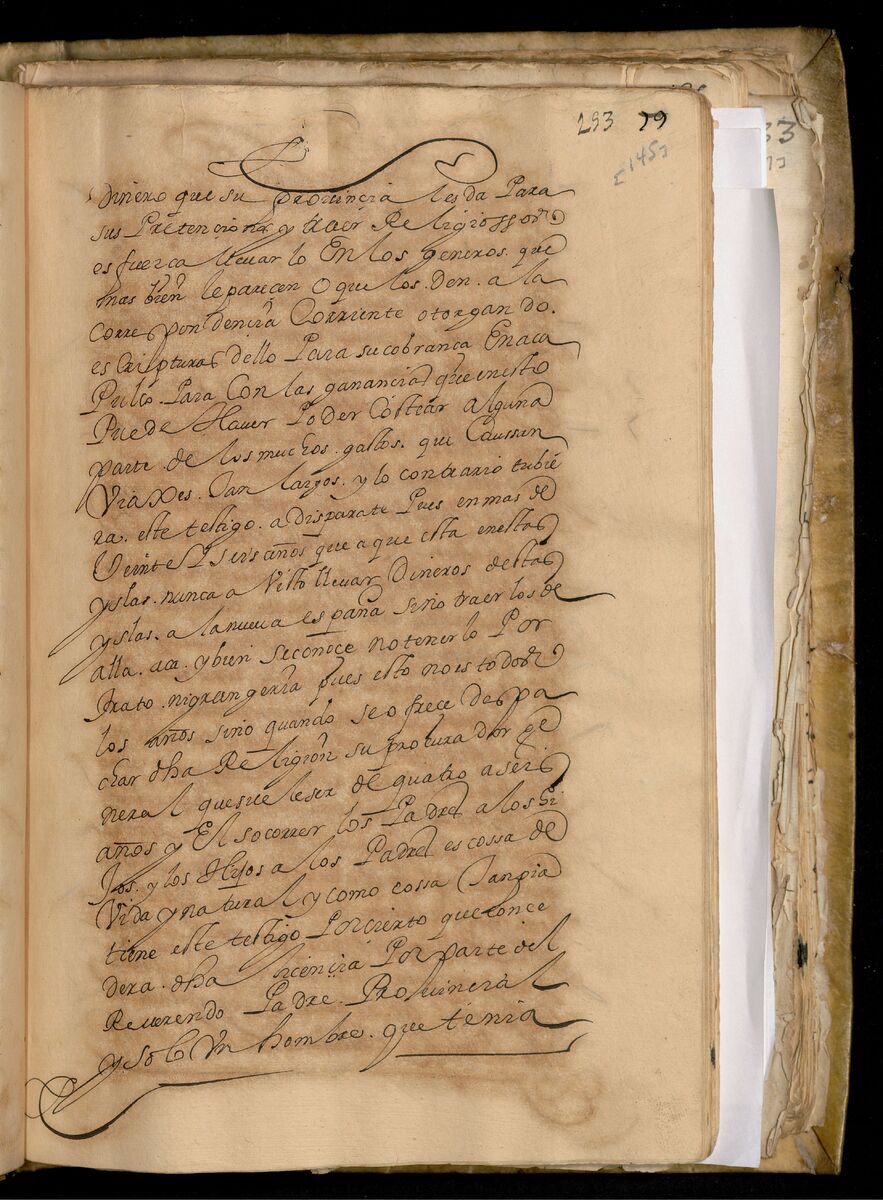 293 79
[145]
Dinero que su provincia les da Para
sus Pretenciones y traer Religiossos
es fuerca lleuar lo En los generos que
mas bien le parecen O que los den a la
Corres pon dencia Corriente otorgando
escripturas dello Para su cobranca En aca
Pulco Para Con las ganancias que en esto
Puede Hauer Poder Costear alguna
parte de los muchos gastos que Caussan
Viaxes Tan largos y lo contrario tubie
ra este testigo a disparate Pues en mas de
Veinte y seis años que a que esta en estas
yslas nunca a Visto lleuar Dineros destas
yslas a la nueua españa sino traer los de
alla aca y bien se conoce no tener lo Por
trato ni grangeria pues esto no es todos
los años sino quando se o frece despa
char dha Religion su procurador ge
neral que suele ser de quatro a seis
años y El socorrer los Padres a los hi
Jos y los Hijos a los Padres es cossa de
Vida y natural y como cossa Tan pia
tiene este testigo Por cierto que conce
dera dha licencia Por parte del
Reuerendo Padre Prouincial
y solo Vn hombre que tenia